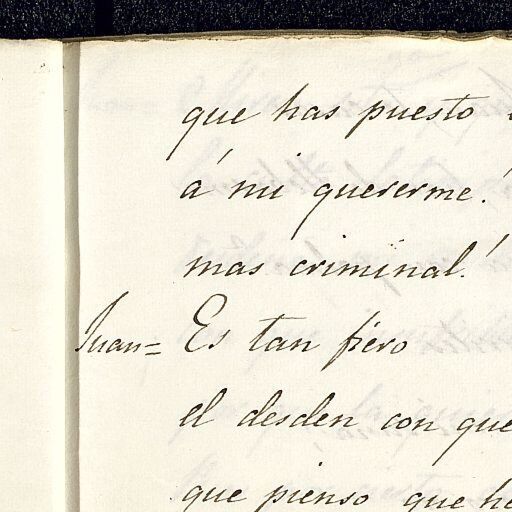 que has puesto
á mi quererme!
mas criminal!
Juan= Es tan fiero
el desden con que
que pienso que he